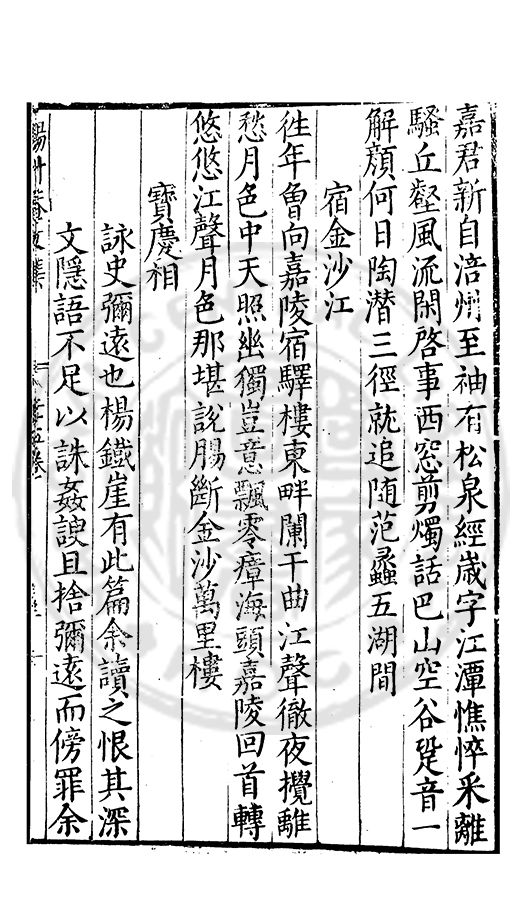 嘉君新自涪州至袖有松泉經歲字江潭憔悴采離
騷丘壑風流閑啓事西窓剪燭話巴山空谷跫音一
解顔何日陶潜三徑就追随范蠡五湖間
宿金沙江
徃年曾向嘉陵宿驛樓東畔闌干曲江聲徹夜攪離
愁月色中天照幽獨豈意飄零瘴海頭嘉陵回首轉
悠悠江聲月色那堪說膓斷金沙萬里樓
寳慶相
詠史彌遠也楊鐵崖有此篇余讀之恨其深
文隱語不足以誅姦諛且捨彌遠而傍罪余